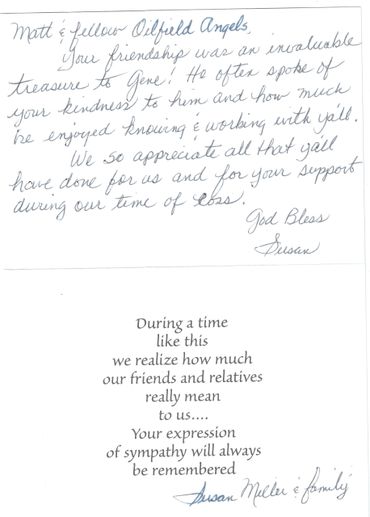 Matt & fellow Oilfield Angels,
Your friendship was an invaluable
treasure to Gene! He often spoke of
your kindness to him and how much
he enjoyed knowing & working with ya'll.
We so appreciate all that ya'll
have done for us and for your support
during our time of loss.
God Bless
Susan
During a time
like this
we realize how much
our friends and relatives
really mean
to us....
Your expression
of sympathy will always
be remembered
Susan Miller & family